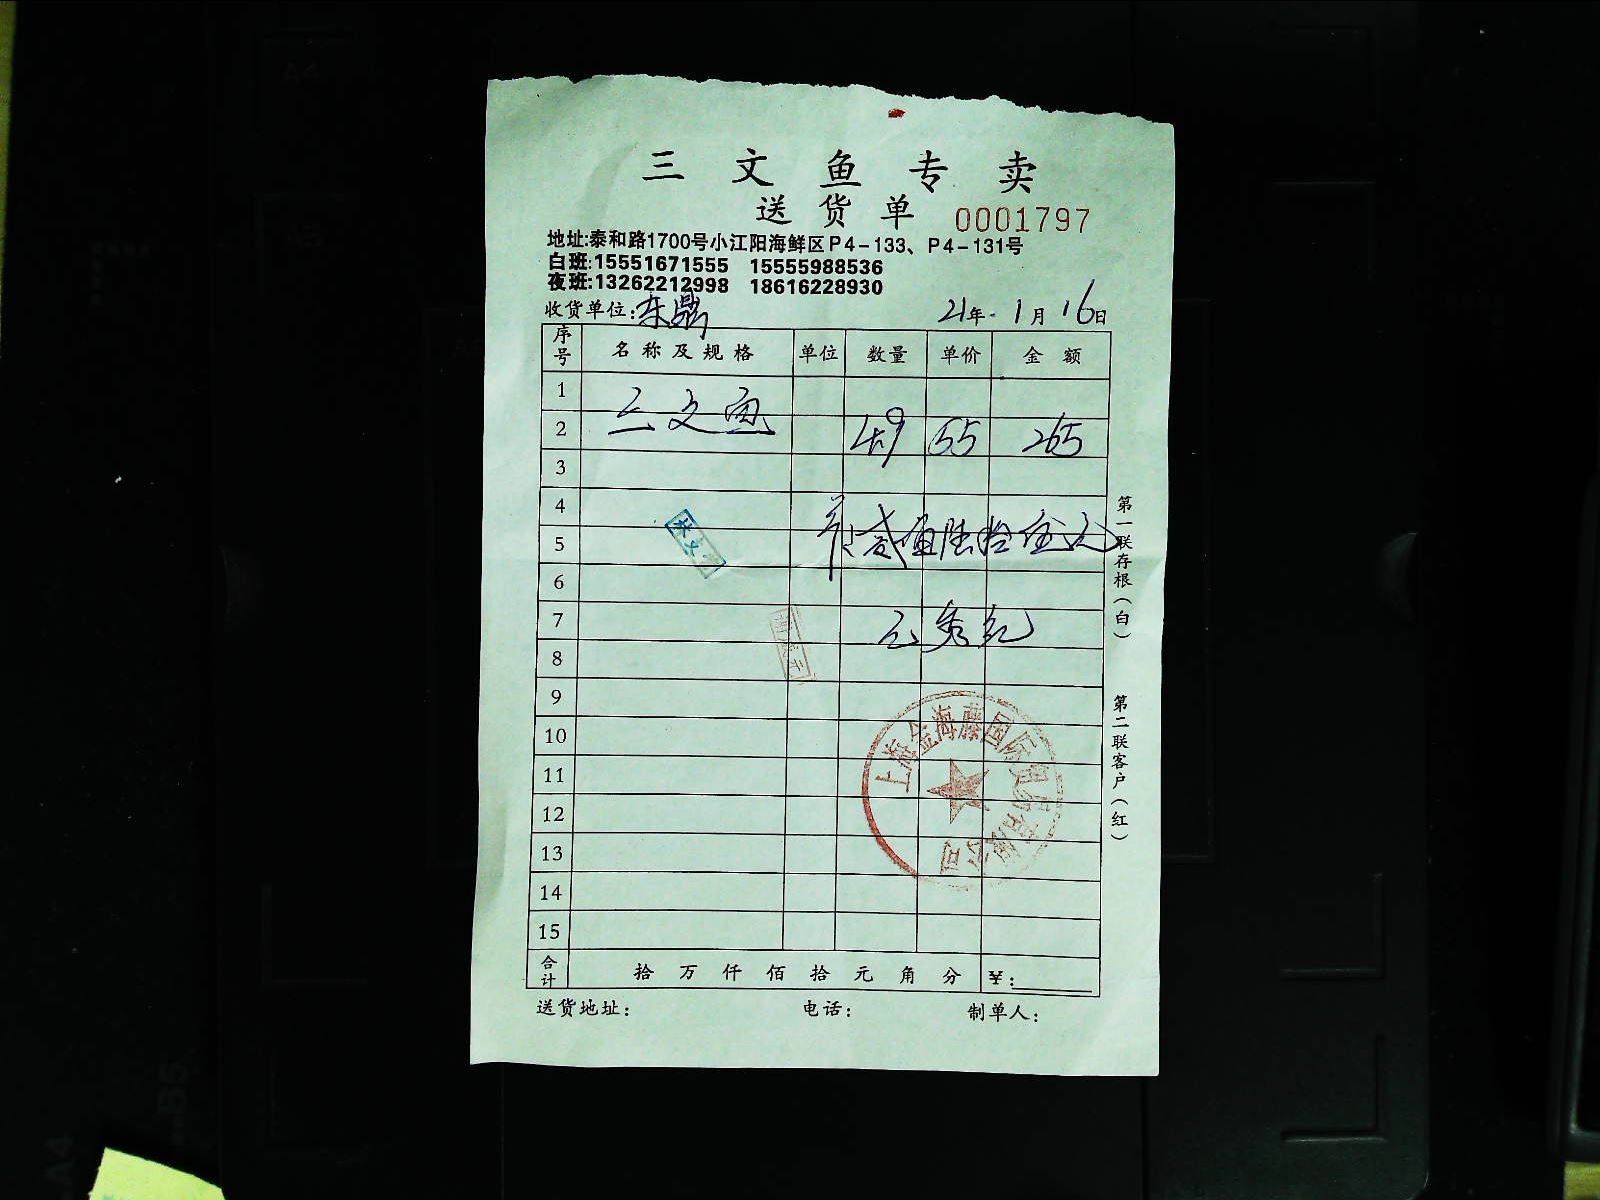 三文鱼专卖
送货单 0001797
地址:泰和路1700号小江阳海鲜区P4-133、P4-131号
白班:15551671555 15555988536
夜班:13262212998 18616228930
收货单位:东鼎 21年1月16日
序号 名称及规格 单位 数量 单价 金额
1
2 三文鱼 4.9 55 265
3
4
5 贰佰陆拾伍元
6
7
8
9
10
11
12
13
14
15
合计 拾万仟佰拾元角分 ¥:
送货地址: 电话: 制单人:
第一联存根(白)
第二联客户(红)
上海金海藤国际贸易有限公司